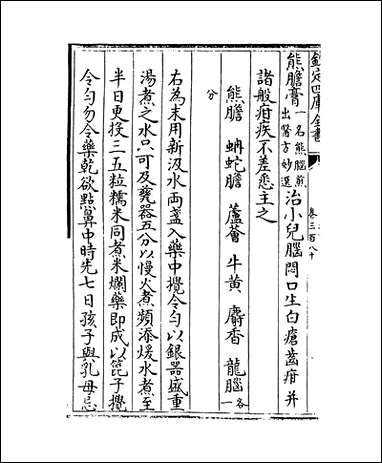 欽定四庫全書
卷三百八十
熊膽膏一名熊腦煎出醫方妙選治小兒腦悶口生白瘡齒疳并
諸般疳疾不差悉主之
熊膽 蚺蛇膽 蘆薈 牛黃 麝香 龍腦各一
分
右為末用新汲水兩盞入藥中攪令勻以銀器盛重
湯煮之水只可及甕器五分以慢火煮頻添煖水煮至
半日更投三五粒糯米同煮米爛藥即成以篦子攪
令勻勿令藥乾欲點鼻中時先七日孩子與乳母忌